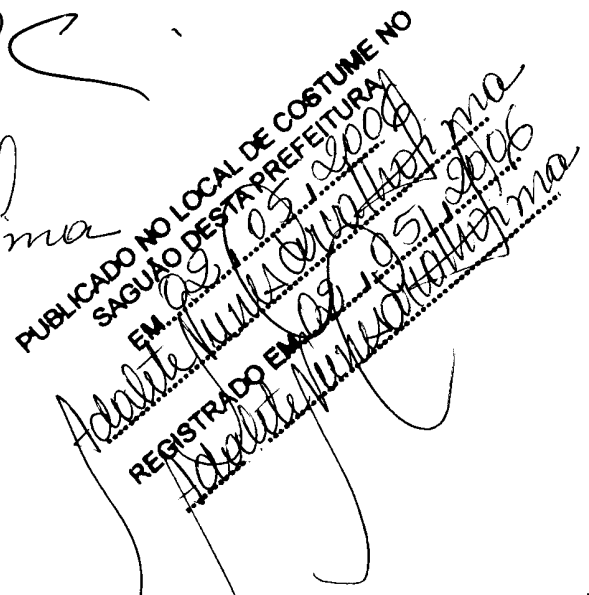 ma
PUBLICADO NO LOCAL DE COSTUME NO
SAGUÃO DESTA PREFEITURA
EM 02 / 05 / 2006
Adalete Nunes Carvalho Lima
REGISTRADO EM 02 / 05 / 2006
Adalete Nunes Carvalho Lima